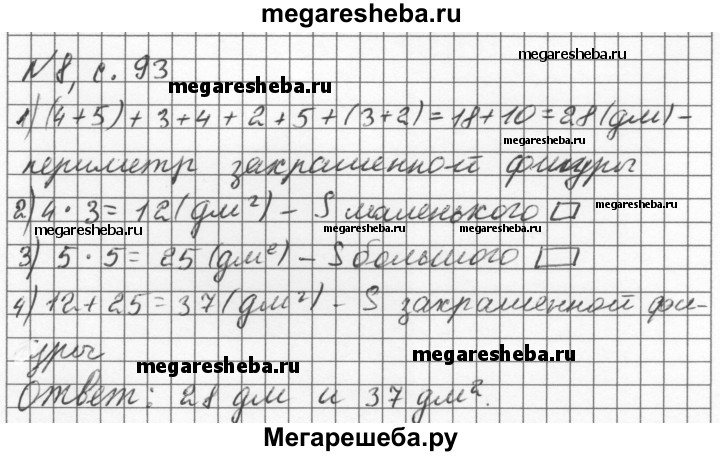 megaresheba.ru
№8, с. 93
megaresheba.ru
megaresheba.ru
1) (4+5)+3+4+2+5+(3+2)=18+10=28(дм)-
megaresheba.ru
megaresheba.ru
периметр закрашенной фигуры
2) 4·3=12(дм²)-S маленького
megaresheba.ru
megaresheba.ru
megaresheba.ru
megaresheba.ru
3) 5·5=25(дм²)-S большого
4) 12+25=37(дм²)-S закрашенной фи-
гуры
megaresheba.ru
megaresheba.ru
Ответ: 28 дм и 37 дм².
Мегарешеба.ру